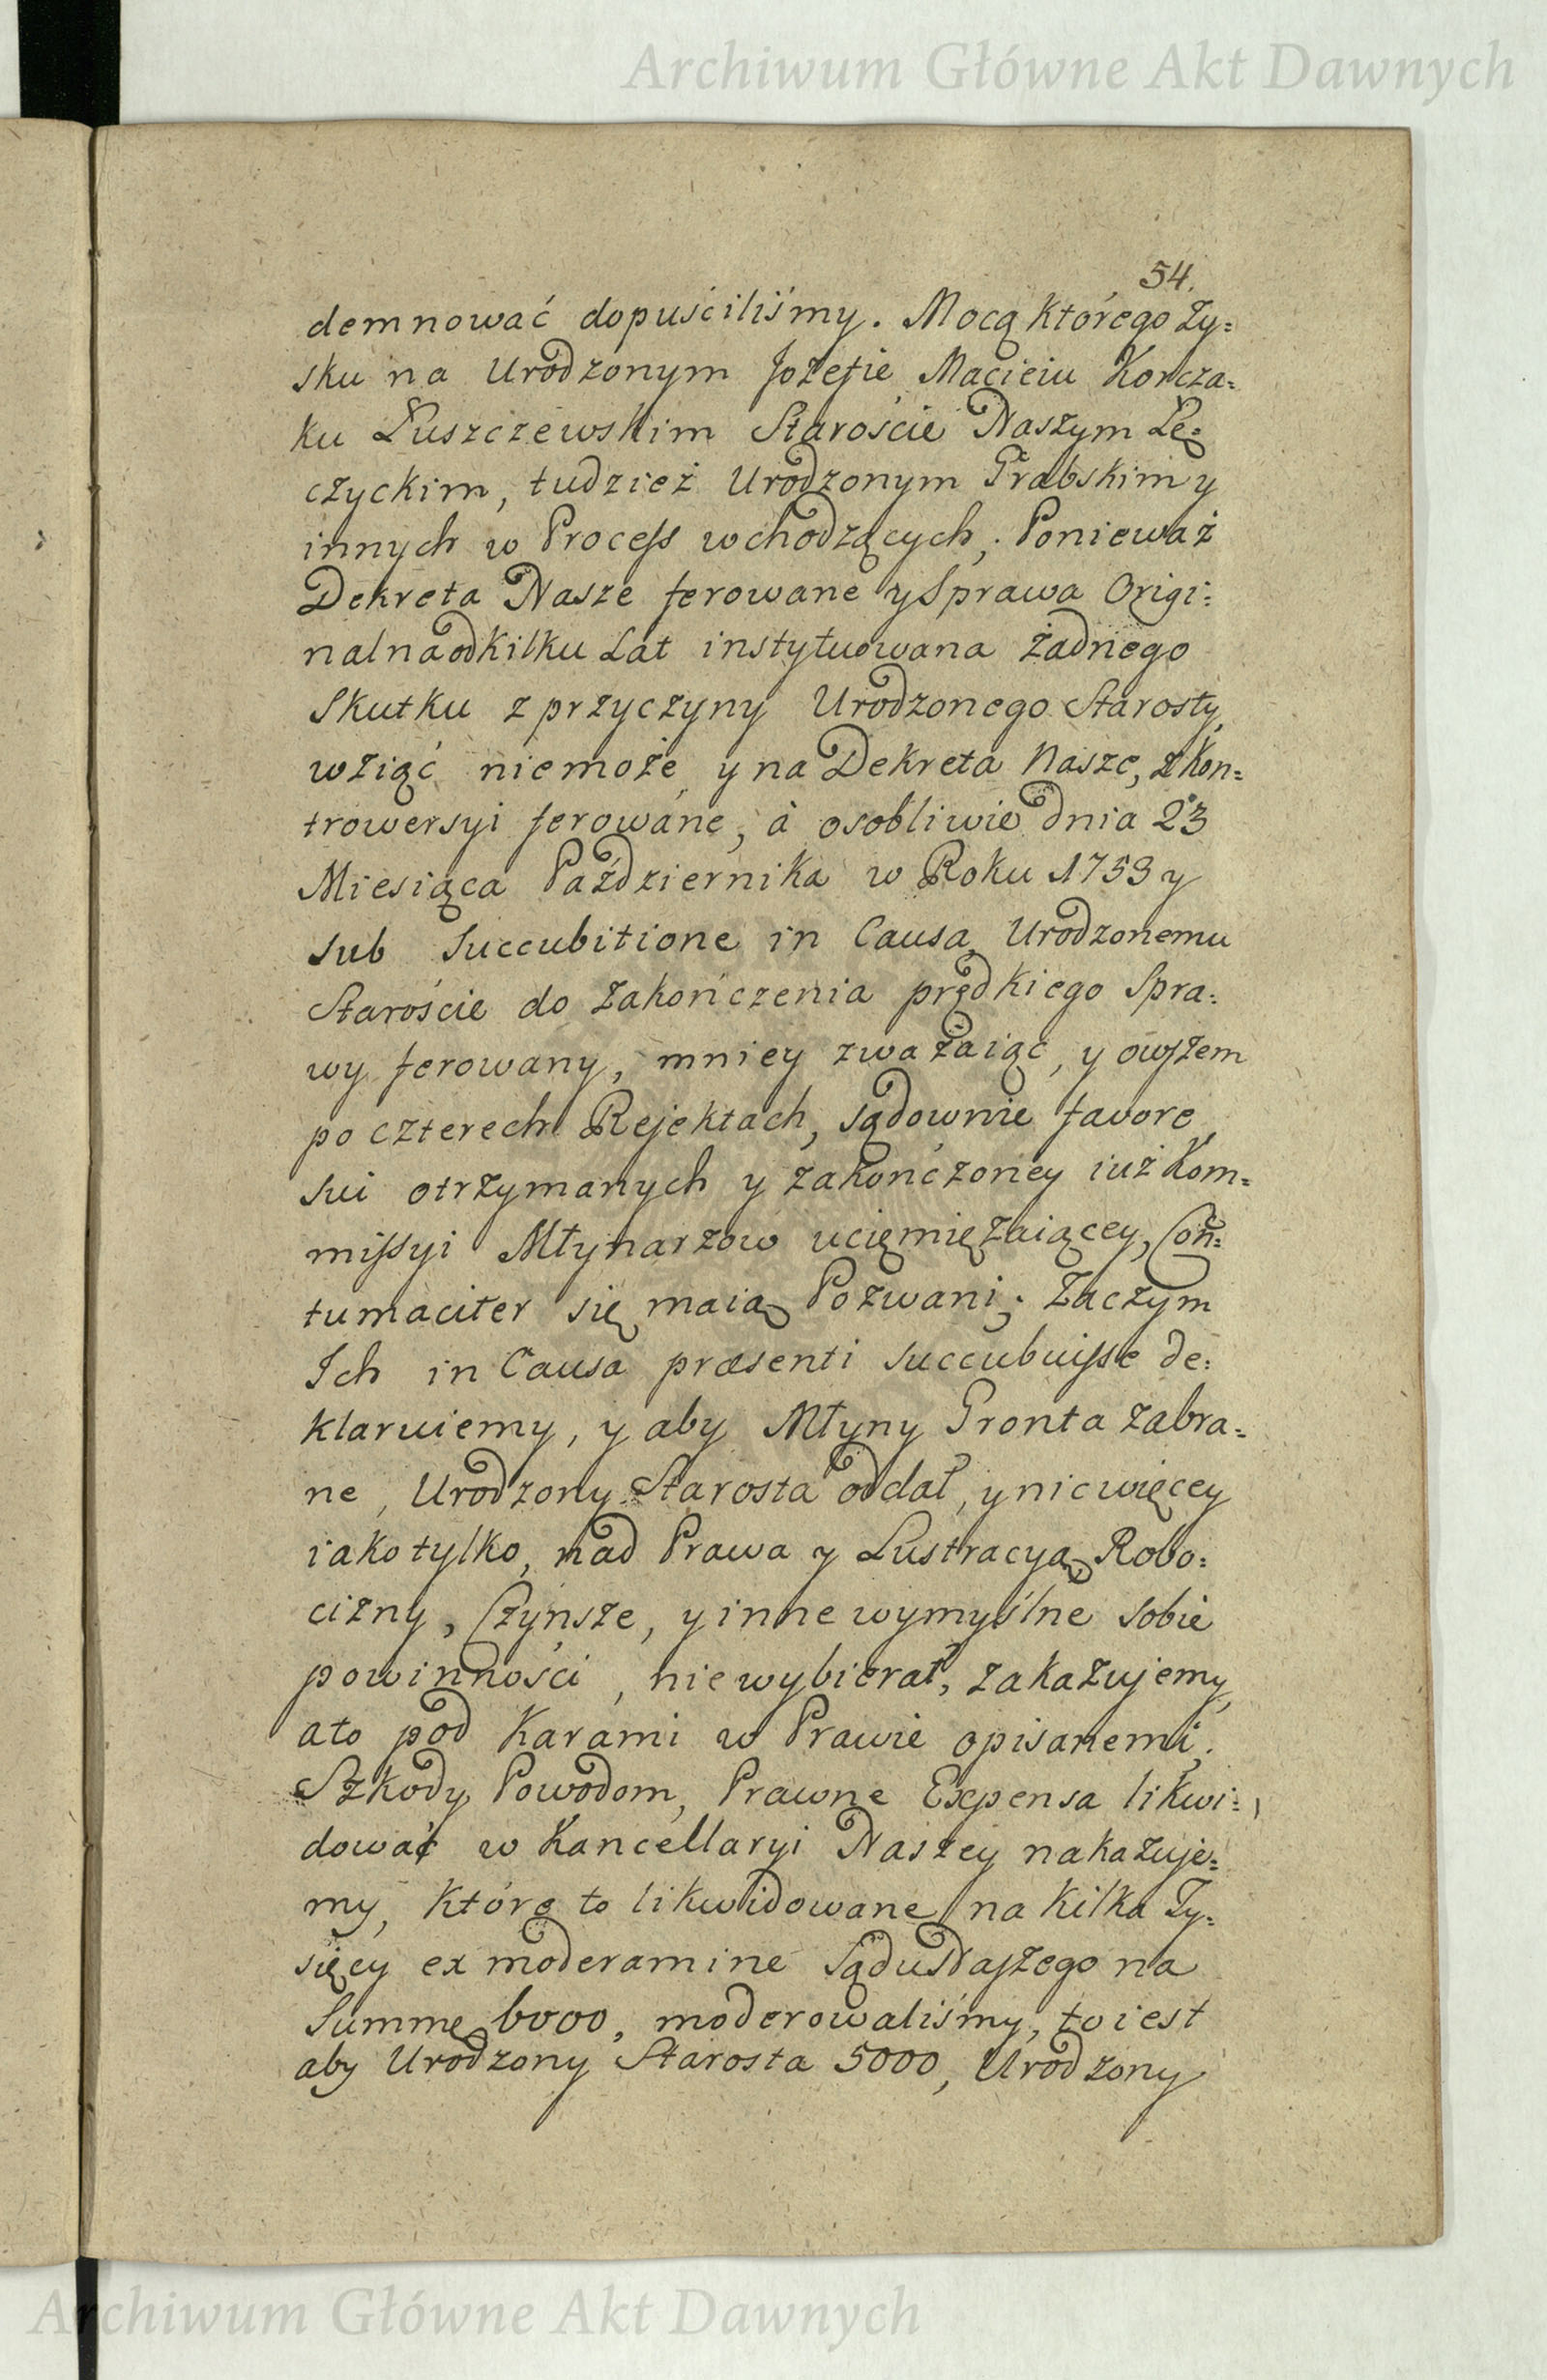 Archiwum Główne Akt Dawnych
54.
demnować dopuściliśmy. Mocą którego Zy=
sku na Urodzonym Jozefie Macieiu Korcza=
ku Łuszczewskim Staroście Naszym Łę=
czyckim, tudzież Urodzonym Grabskim y
innych w Process wchodzących; Ponieważ
Dekreta Nasze ferowane y Sprawa Origi=
nalna od kilku Lat instytuowana żadnego
Skutku z przyczyny Urodzonego Starosty
wziąć niemoże, y na Dekreta Nasze, z kon=
trowersyi ferowane, à osobliwie dnia 23
Miesiąca Października w Roku 1753 y
sub succubitione in Causa, Urodzonemu
Staroście do zakończenia prędkiego Spra=
wy ferowany, mniey zważaiąc, y owszem
po czterech Rejektach, sądownie favore
sui otrzymanych y zakończoney iuż Kom=
missyi Młynarzow uciemiężaiącey, Con=
tumaciter się maią Pozwani; Zaczym
Ich in Causa præsenti succubuisse de=
klaruiemy, y aby Młyny Gronta zabra=
ne, Urodzony Starosta oddał, y nic więcey
iako tylko, nad Prawa y Lustracyą, Robo=
cizny, Czynsze, y inne wymyślne sobie
powinności, nie wybierał, zakazujemy,
ato pod Karami w Prawie opisanemi.
Szkody Powodom, Prawne Expensa likwi=
dować w Kancellaryi Naszey nakazuje=
my, które to likwidowane na kilka Ty=
sięcy ex moderamine Sądu Naszego na
Summę 6000, moderowaliśmy, to iest
aby Urodzony Starosta 5000, Urodzony
Archiwum Główne Akt Dawnych